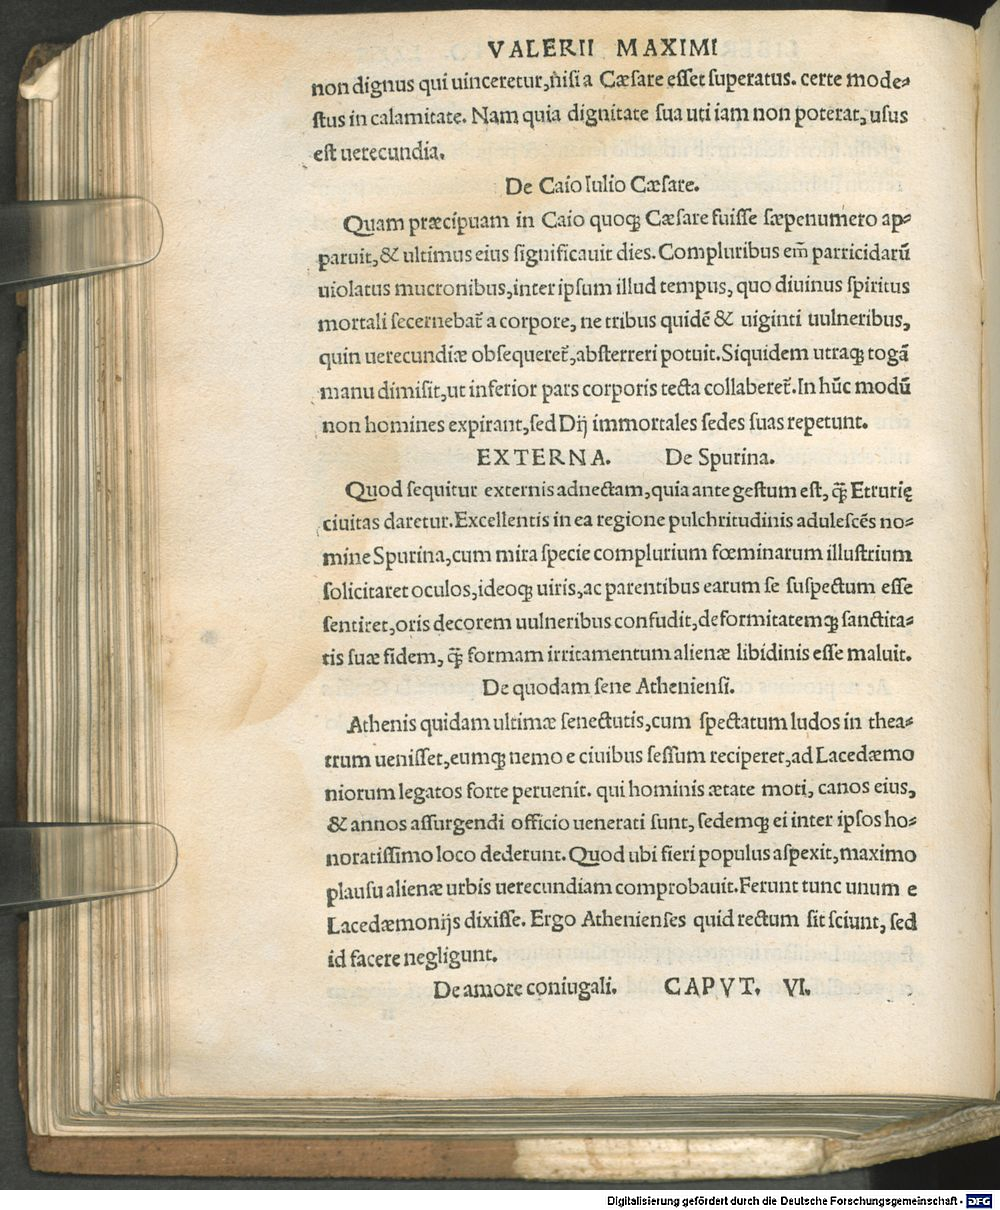 VALERII MAXIMI
non dignus qui uinceretur, nisi a Cæsare esset superatus. certe mode⸗
stus in calamitate. Nam quia dignitate sua uti iam non poterat, usus
est uerecundia.
De Caio Iulio Cæsare.
Quam præcipuam in Caio quoqꝫ Cæsare fuisse sæpenumero ap⸗
paruit, & ultimus eius significauit dies. Compluribus em̄ parricidarū
uiolatus mucronibus, inter ipsum illud tempus, quo diuinus spiritus
mortali secernebat̄ a corpore, ne tribus quidē & uiginti uulneribus,
quin uerecundiæ obsequeret̄, absterreri potuit. Siquidem utraqꝫ togā
manu dimisit, ut inferior pars corporis tecta collaberet̄. In hūc modū
non homines expirant, sed Dij immortales sedes suas repetunt.
EXTERNA. De Spurina.
Quod sequitur externis adnectam, quia ante gestum est, q̄ꝫ Etrurię
ciuitas daretur. Excellentis in ea regione pulchritudinis adulescēs no⸗
mine Spurina, cum mira specie complurium fœminarum illustrium
solicitaret oculos, ideoqꝫ uiris, ac parentibus earum se suspectum esse
sentiret, oris decorem uulneribus confudit, deformitatemqꝫ sanctita⸗
tis suæ fidem, q̄ꝫ formam irritamentum alienæ libidinis esse maluit.
De quodam sene Atheniensi.
Athenis quidam ultimæ senectutis, cum spectatum ludos in thea⸗
trum uenisset, eumqꝫ nemo e ciuibus sessum reciperet, ad Lacedæmo
niorum legatos forte peruenit. qui hominis ætate moti, canos eius,
& annos assurgendi officio uenerati sunt, sedemqꝫ ei inter ipsos ho⸗
noratissimo loco dederunt. Quod ubi fieri populus aspexit, maximo
plausu alienæ urbis uerecundiam comprobauit. Ferunt tunc unum e
Lacedæmonijs dixisse. Ergo Athenienses quid rectum sit sciunt, sed
id facere negligunt.
De amore coniugali. CAPVT. VI.
Digitalisierung gefördert durch die Deutsche Forschungsgemeinschaft - DFG